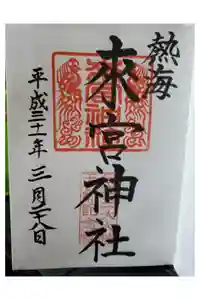 熱海
來宮神社
平成三十一年三月二十八日